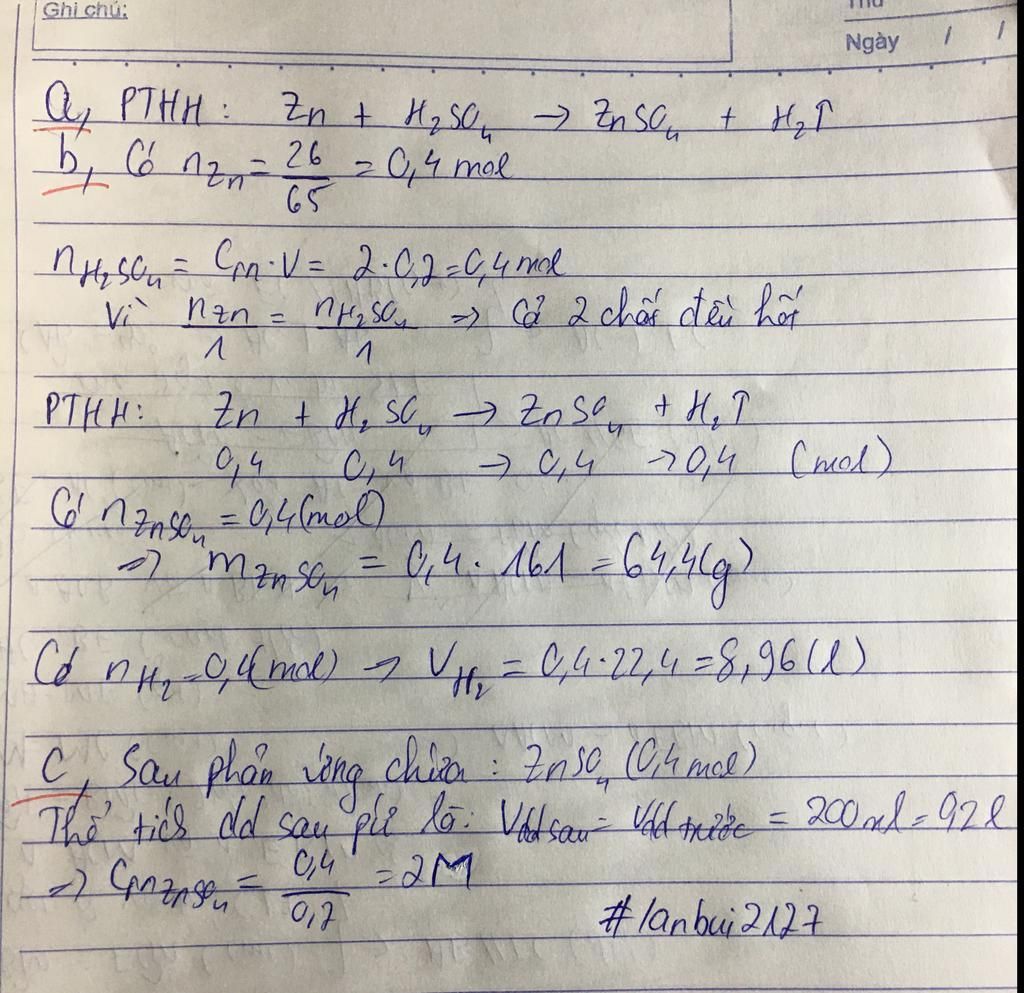 Ghi chú:
Thứ
Ngày / /
a, PTHH: Zn + H₂SO₄ → ZnSO₄ + H₂↑
b, Có nZn = 26/65 = 0,4 mol
nH₂SO₄ = CM.V = 2.0,2 = 0,4 mol
Vì nZn/1 = nH₂SO₄/1 => Cả 2 chất đều hết
PTHH: Zn + H₂SO₄ → ZnSO₄ + H₂↑
0,4 0,4 → 0,4 → 0,4 (mol)
Có nZnSO₄ = 0,4(mol)
=> mZnSO₄ = 0,4.161 = 64,4(g)
Có nH₂ = 0,4(mol) → VH₂ = 0,4.22,4 = 8,96(l)
C, Sau phản ứng chứa: ZnSO₄ (0,4 mol)
Thể tích dd sau pứ là: Vdd sau = Vdd trước = 200ml = 0,2l
=> CM ZnSO₄ = 0,4/0,2 = 2M
#lanbui2127